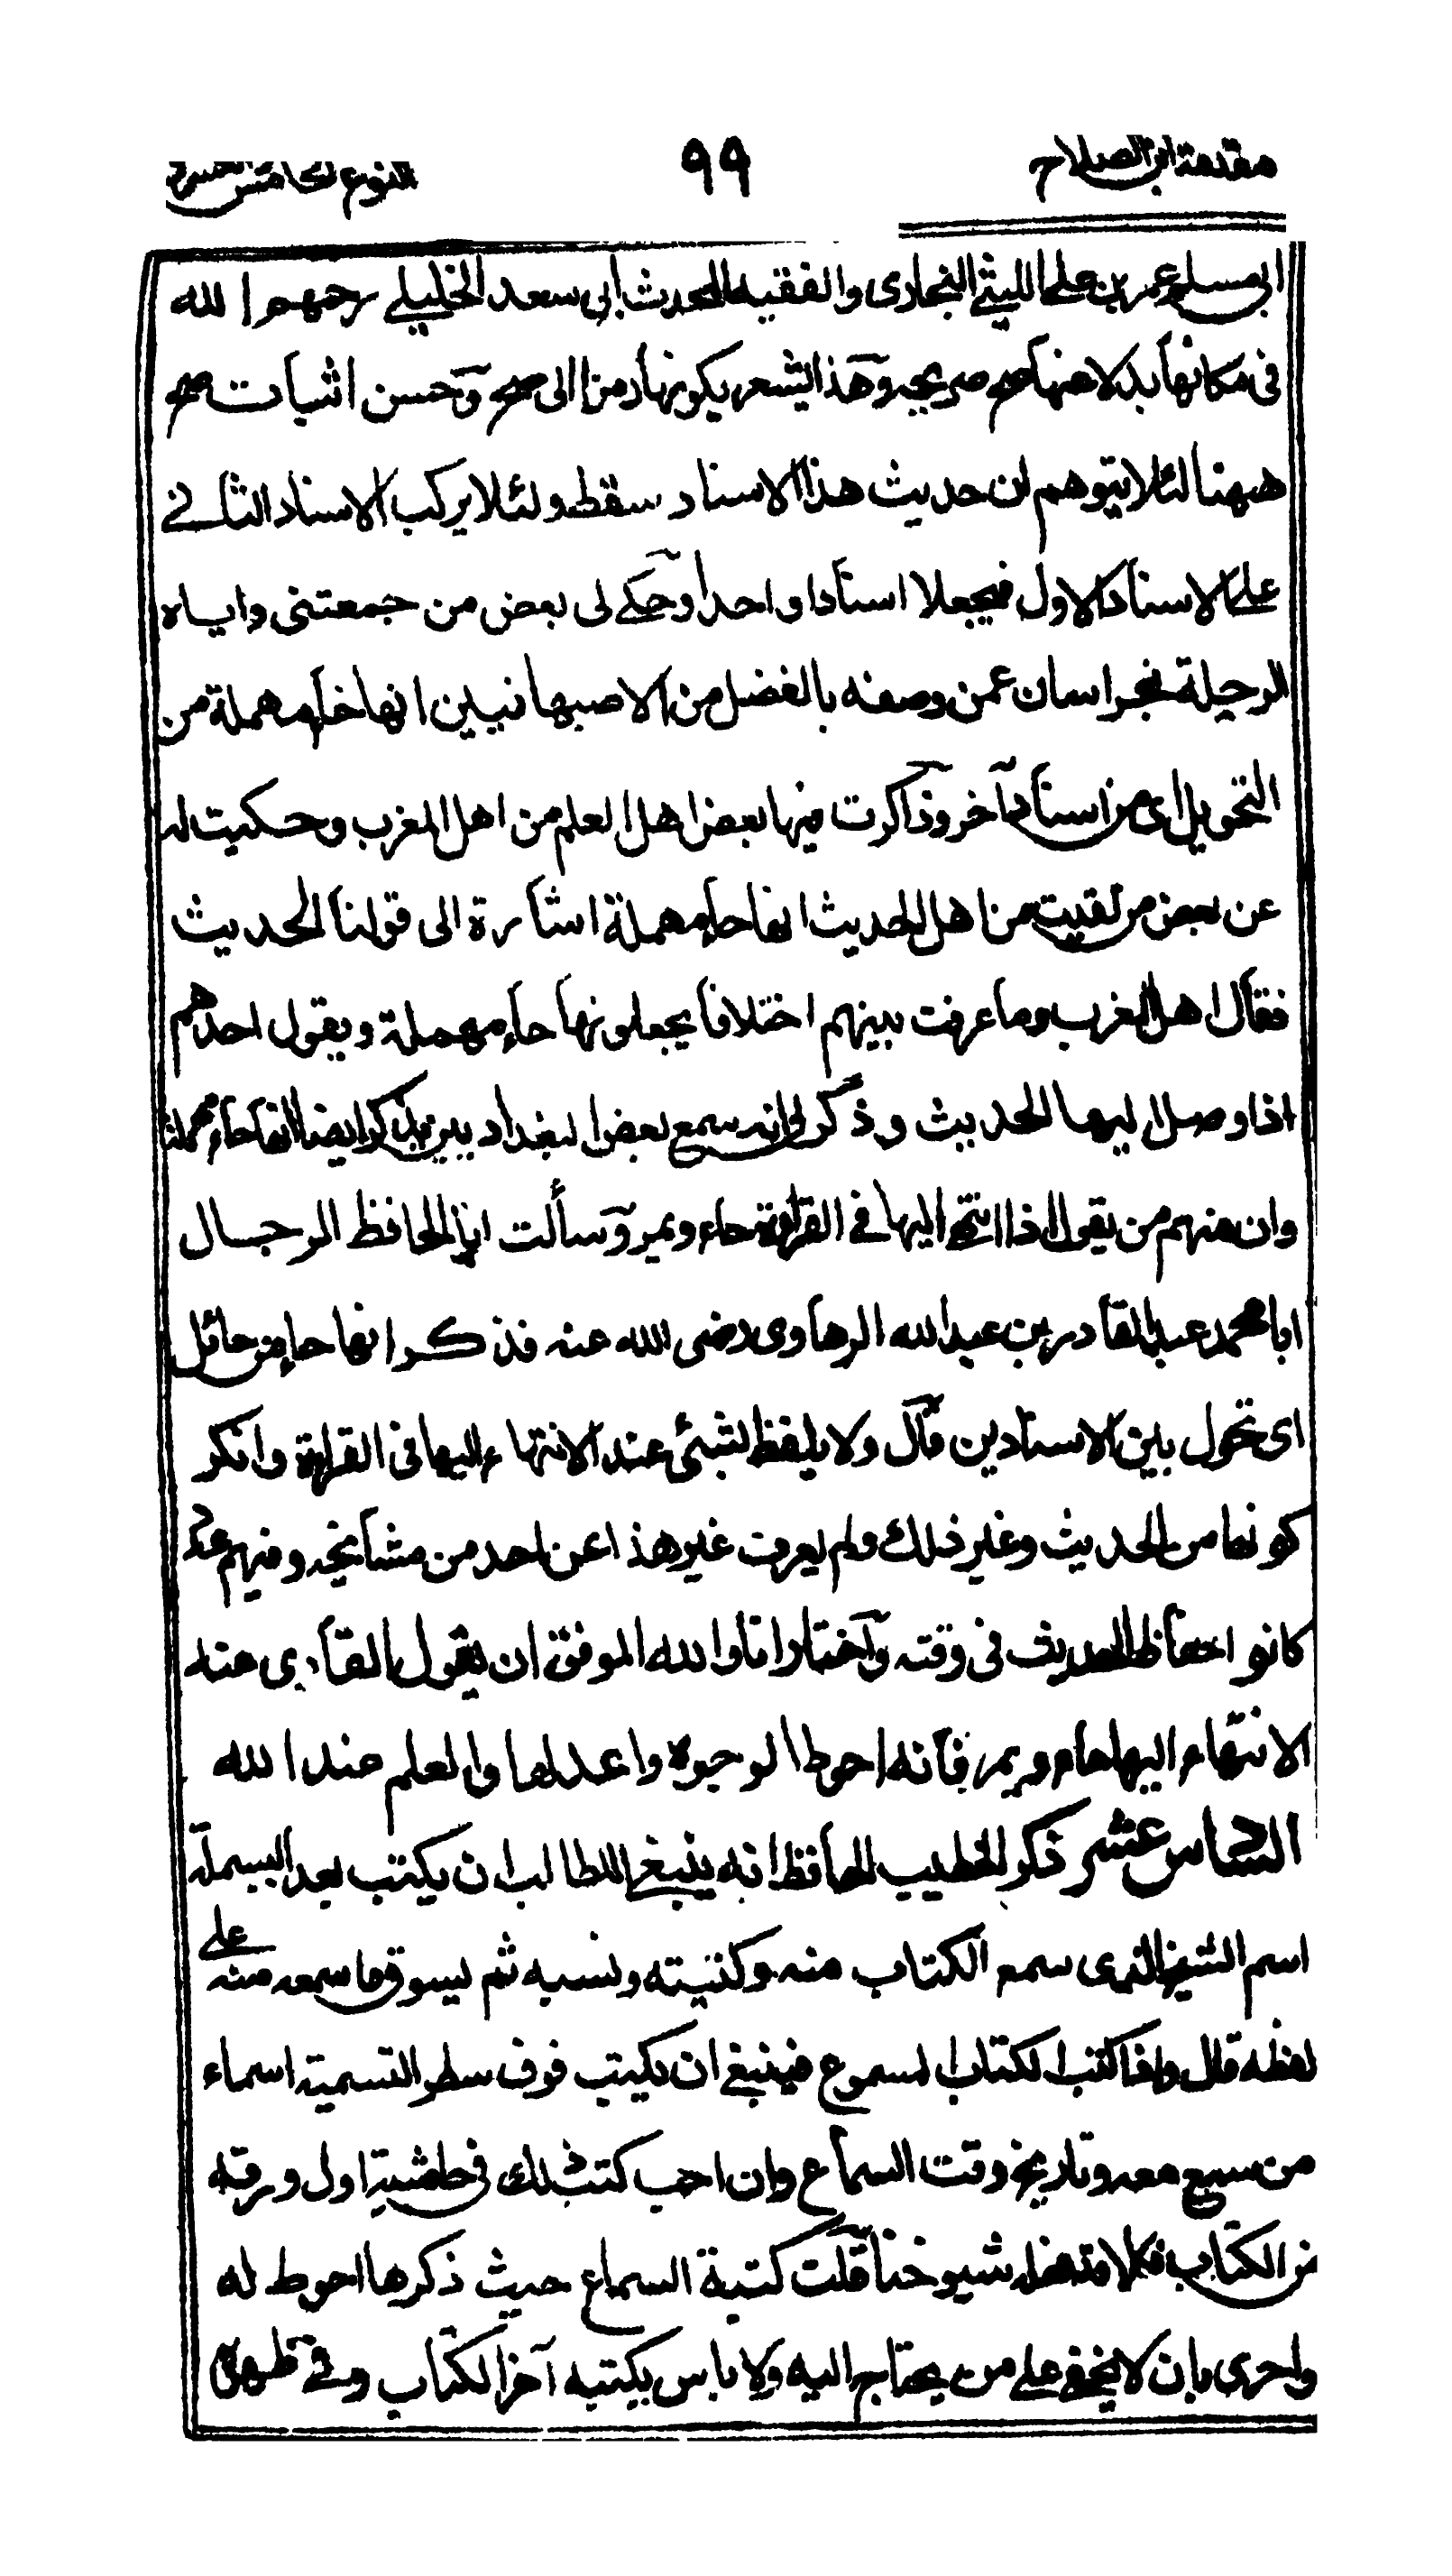 مقدمة ابن الصلاح ٩٩ النوع الخامس والعشرون
ابى مسلم عمر بن على الليثى البخارى والفقيه المحدث ابى سعد الخليلى رحمهم الله
فى مكانها بدلا عنها صح صريحة وهذا يشعر بكونها رمزا الى صح وحسن اثبات صح
ههنا لئلا يتوهم ان حديث هذا الاسناد سقط ولئلا يركب الاسناد الثانى
على الاسناد الاول فيجعلا اسنادا واحدا وحكى لى بعض من جمعتنى واياه
الرحلة بخراسان عمن وصفه بالفضل من الاصبهانيين انها خاء مهملة من
التحويل اى من اسناد آخر وذاكرت فيها بعض اهل العلم من اهل المغرب وحكيت له
عن بعض من لقيت من اهل الحديث انها حاء مهملة اشارة الى قولنا الحديث
فقال اهل المغرب وما عرفت بينهم اختلافا يجعلونها حاء مهملة ويقول احدهم
اذا وصل اليها الحديث وذكر لى انه سمع بعض البغداديين يذكر ايضا انها حاء مهملة
وان منهم من يقول اذا انتهى اليها فى القراءة حاء ويمر وسألت انا الحافظ الرحال
ابا محمد عبد القادر بن عبد الله الرهاوى رضى الله عنه فذكر انها حاء من حائل
اى تحول بين الاسنادين قال ولا يلفظ بشئ عند الانتهاء اليها فى القراءة وانكر
كونها من الحديث وغير ذلك ولم يعرف غير هذا عن احد من مشايخه وفيهم عدد
كانوا حفاظ الحديث فى وقته واختار انا والله الموفق ان يقول القارى عند
الانتهاء اليها حاء ويمر فانه احوط الوجوه واعدلها والعلم عند الله
السادس عشر ذكر الخطيب الحافظ انه ينبغى للطالب ان يكتب بعد البسملة
اسم الشيخ الذى سمع الكتاب منه وكنيته ونسبه ثم يسوق ما سمعه منه على
لفظه قال واذا كتب الكتاب المسموع فينبغى ان يكتب فوق سطر التسمية اسماء
من سمع معه وتاريخ وقت السماع وان احب كتب ذلك فى حاشية اول ورقة
من الكتاب فكلا قد فعله شيوخنا قلت كتبة السماع حيث ذكرها احوط له
واحرى بان لا يخفى على من يحتاج اليه ولا باس بكتبه آخر الكتاب وفى ظهره